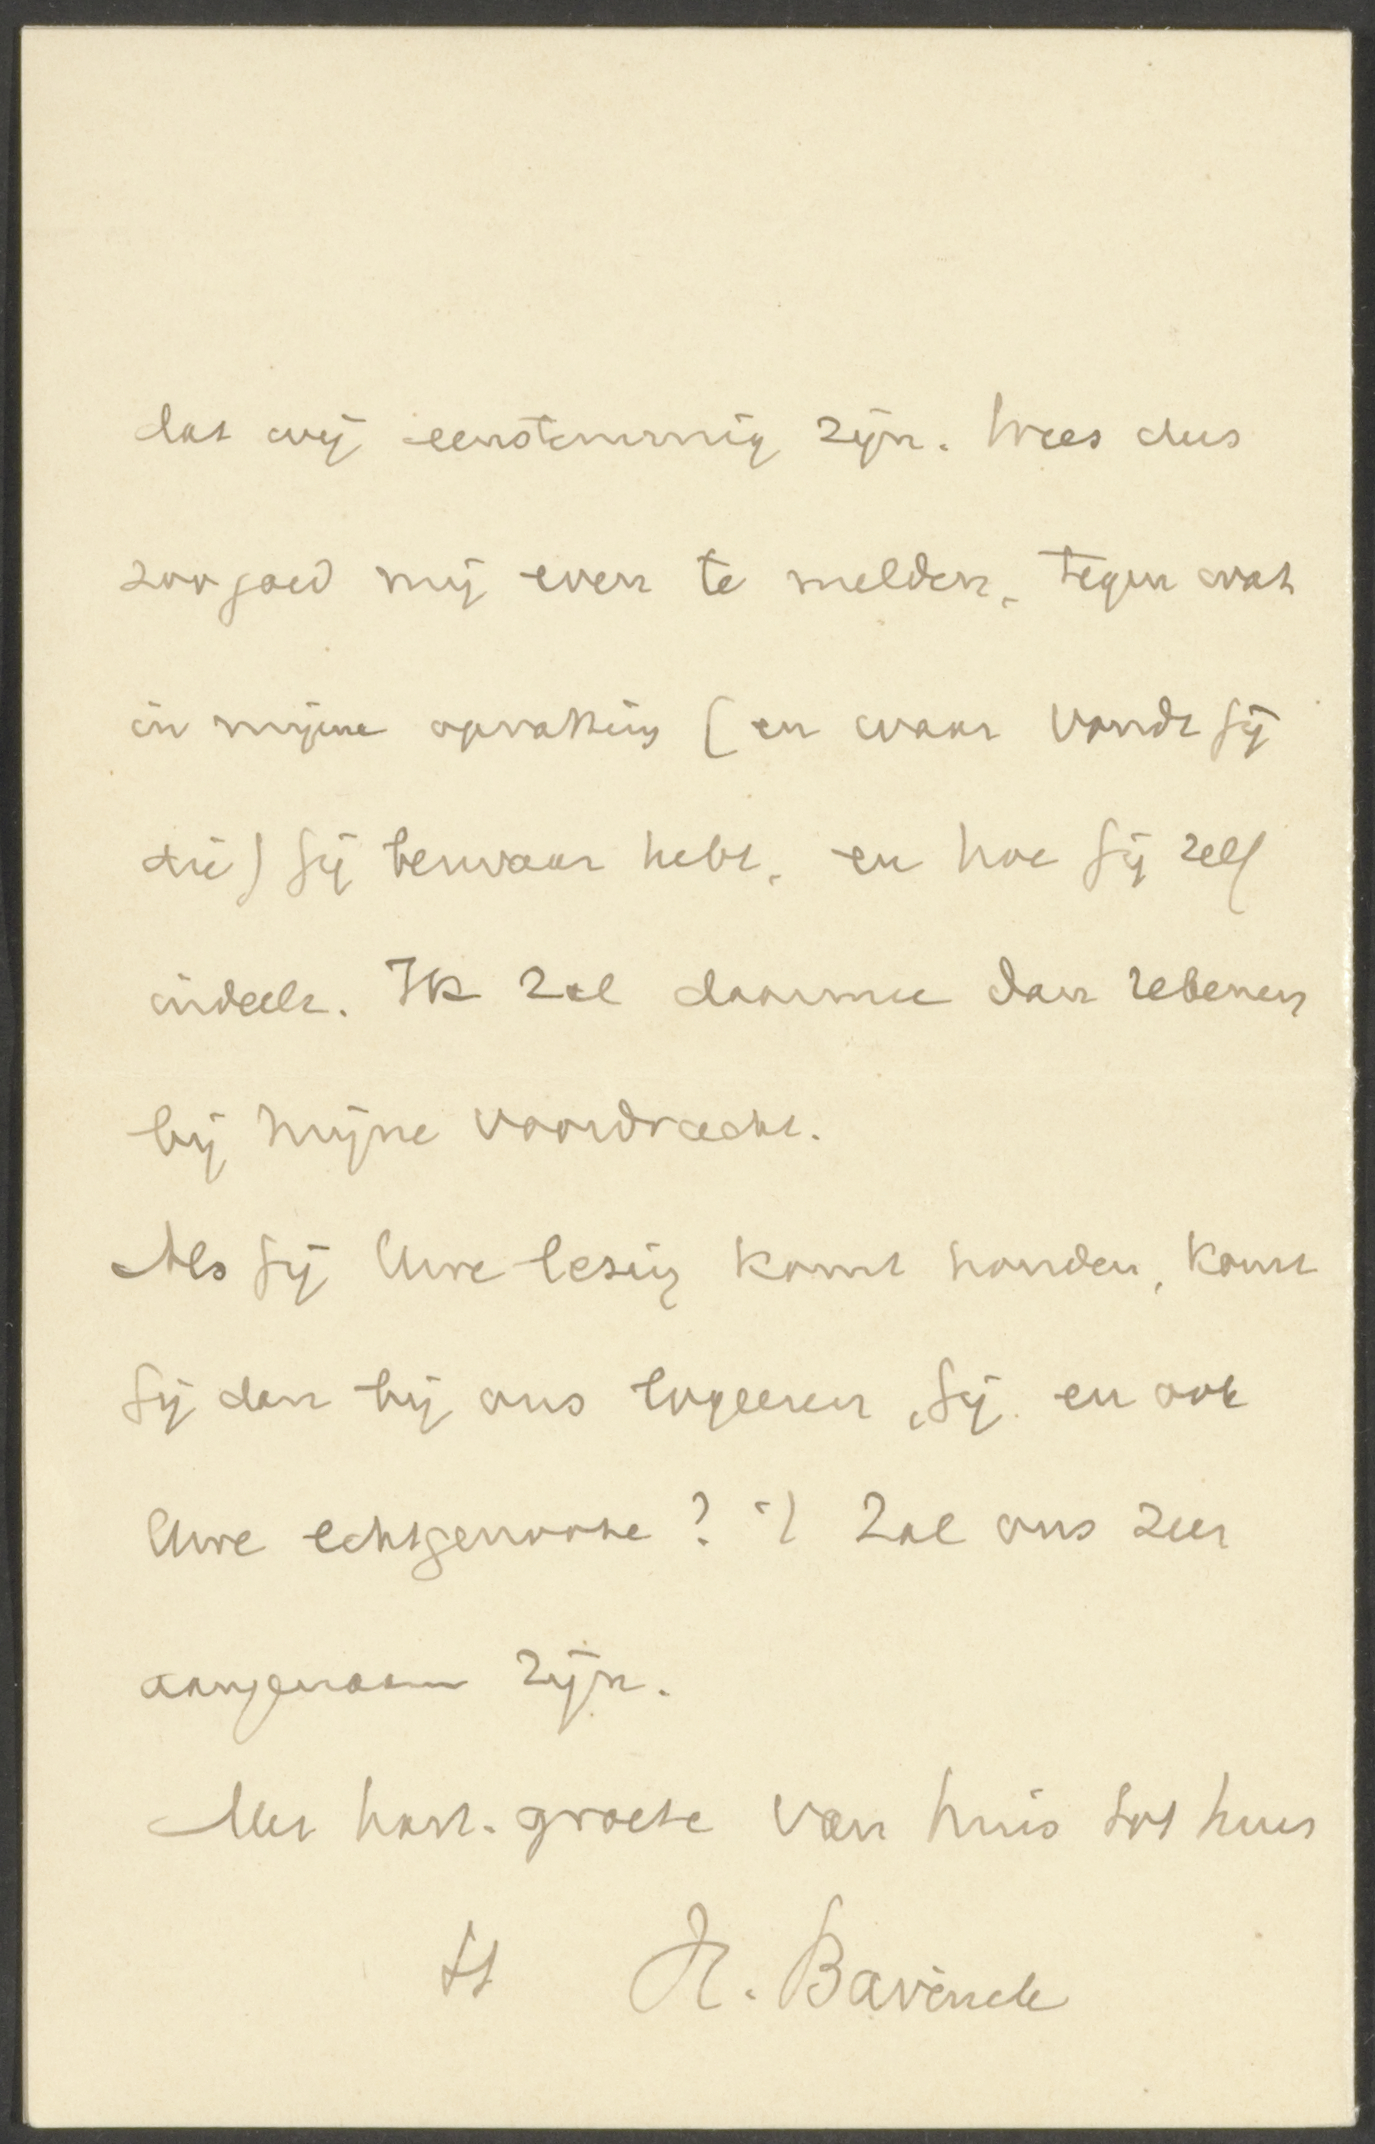 dat wij eenstemmig zijn. Wees dus
zoo goed mij even te melden, tegen wat
in mijne opvatting (en waar vondt gij
die) gij bezwaar hebt, en hoe gij zelf
indeelt. Ik zal daarmee dan rekenen
bij mijne voordracht.
Als gij Uwe lezing komt houden, komt
gij dan bij ons logeeren, gij en ook
Uwe echtgenoote? 't Zal ons zeer
aangenaam zijn.
Met hart. groete van huis tot huis
tt H. Bavinck